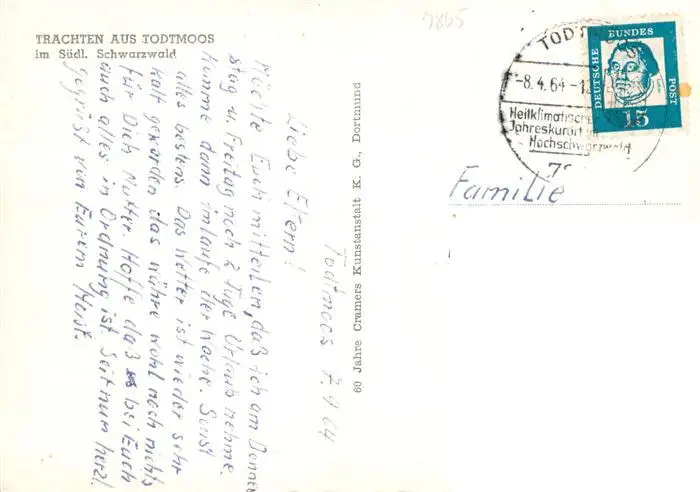 7865
TRACHTEN AUS TODTMOOS
im Südl. Schwarzwald
Todtmoos 7.4.64
Liebe Eltern!
Möchte Euch mitteilen, daß ich am Donners
stag u. Freitag noch 2 Tage Urlaub nehme.
Komme dann imlaufe der Woche. Sonst
alles bestens. Das Wetter ist wieder sehr
kalt geworden das währe wohl noch nichts
für Dich Mutter. Hoffe daß es bei Euch
auch alles in Ordnung ist. Seit nun herzl.
gegrüßt von Eurem Horst.
60 Jahre Cramers Kunstanstalt K. G., Dortmund
TODTMOOS
-8.4.64-12
Heilklimatischer
Jahreskurort im
Hochschwarzwald
DEUTSCHE BUNDES POST
15
Familie